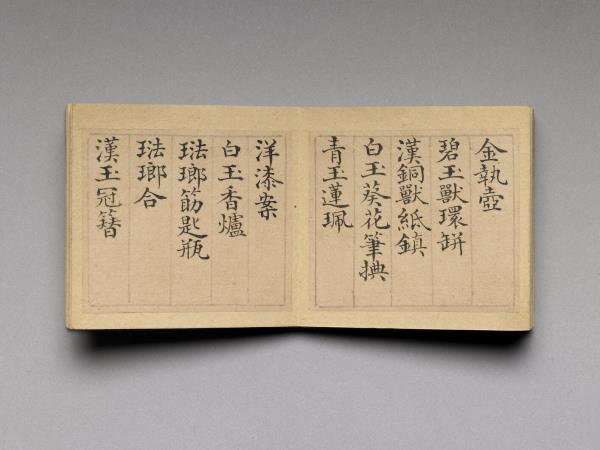 金執壺
碧玉獸環缾
漢銅獸紙鎮
白玉葵花筆㨪
青玉蓮珮
洋漆案
白玉香爐
琺瑯筯匙瓶
琺瑯合
漢玉冠簪